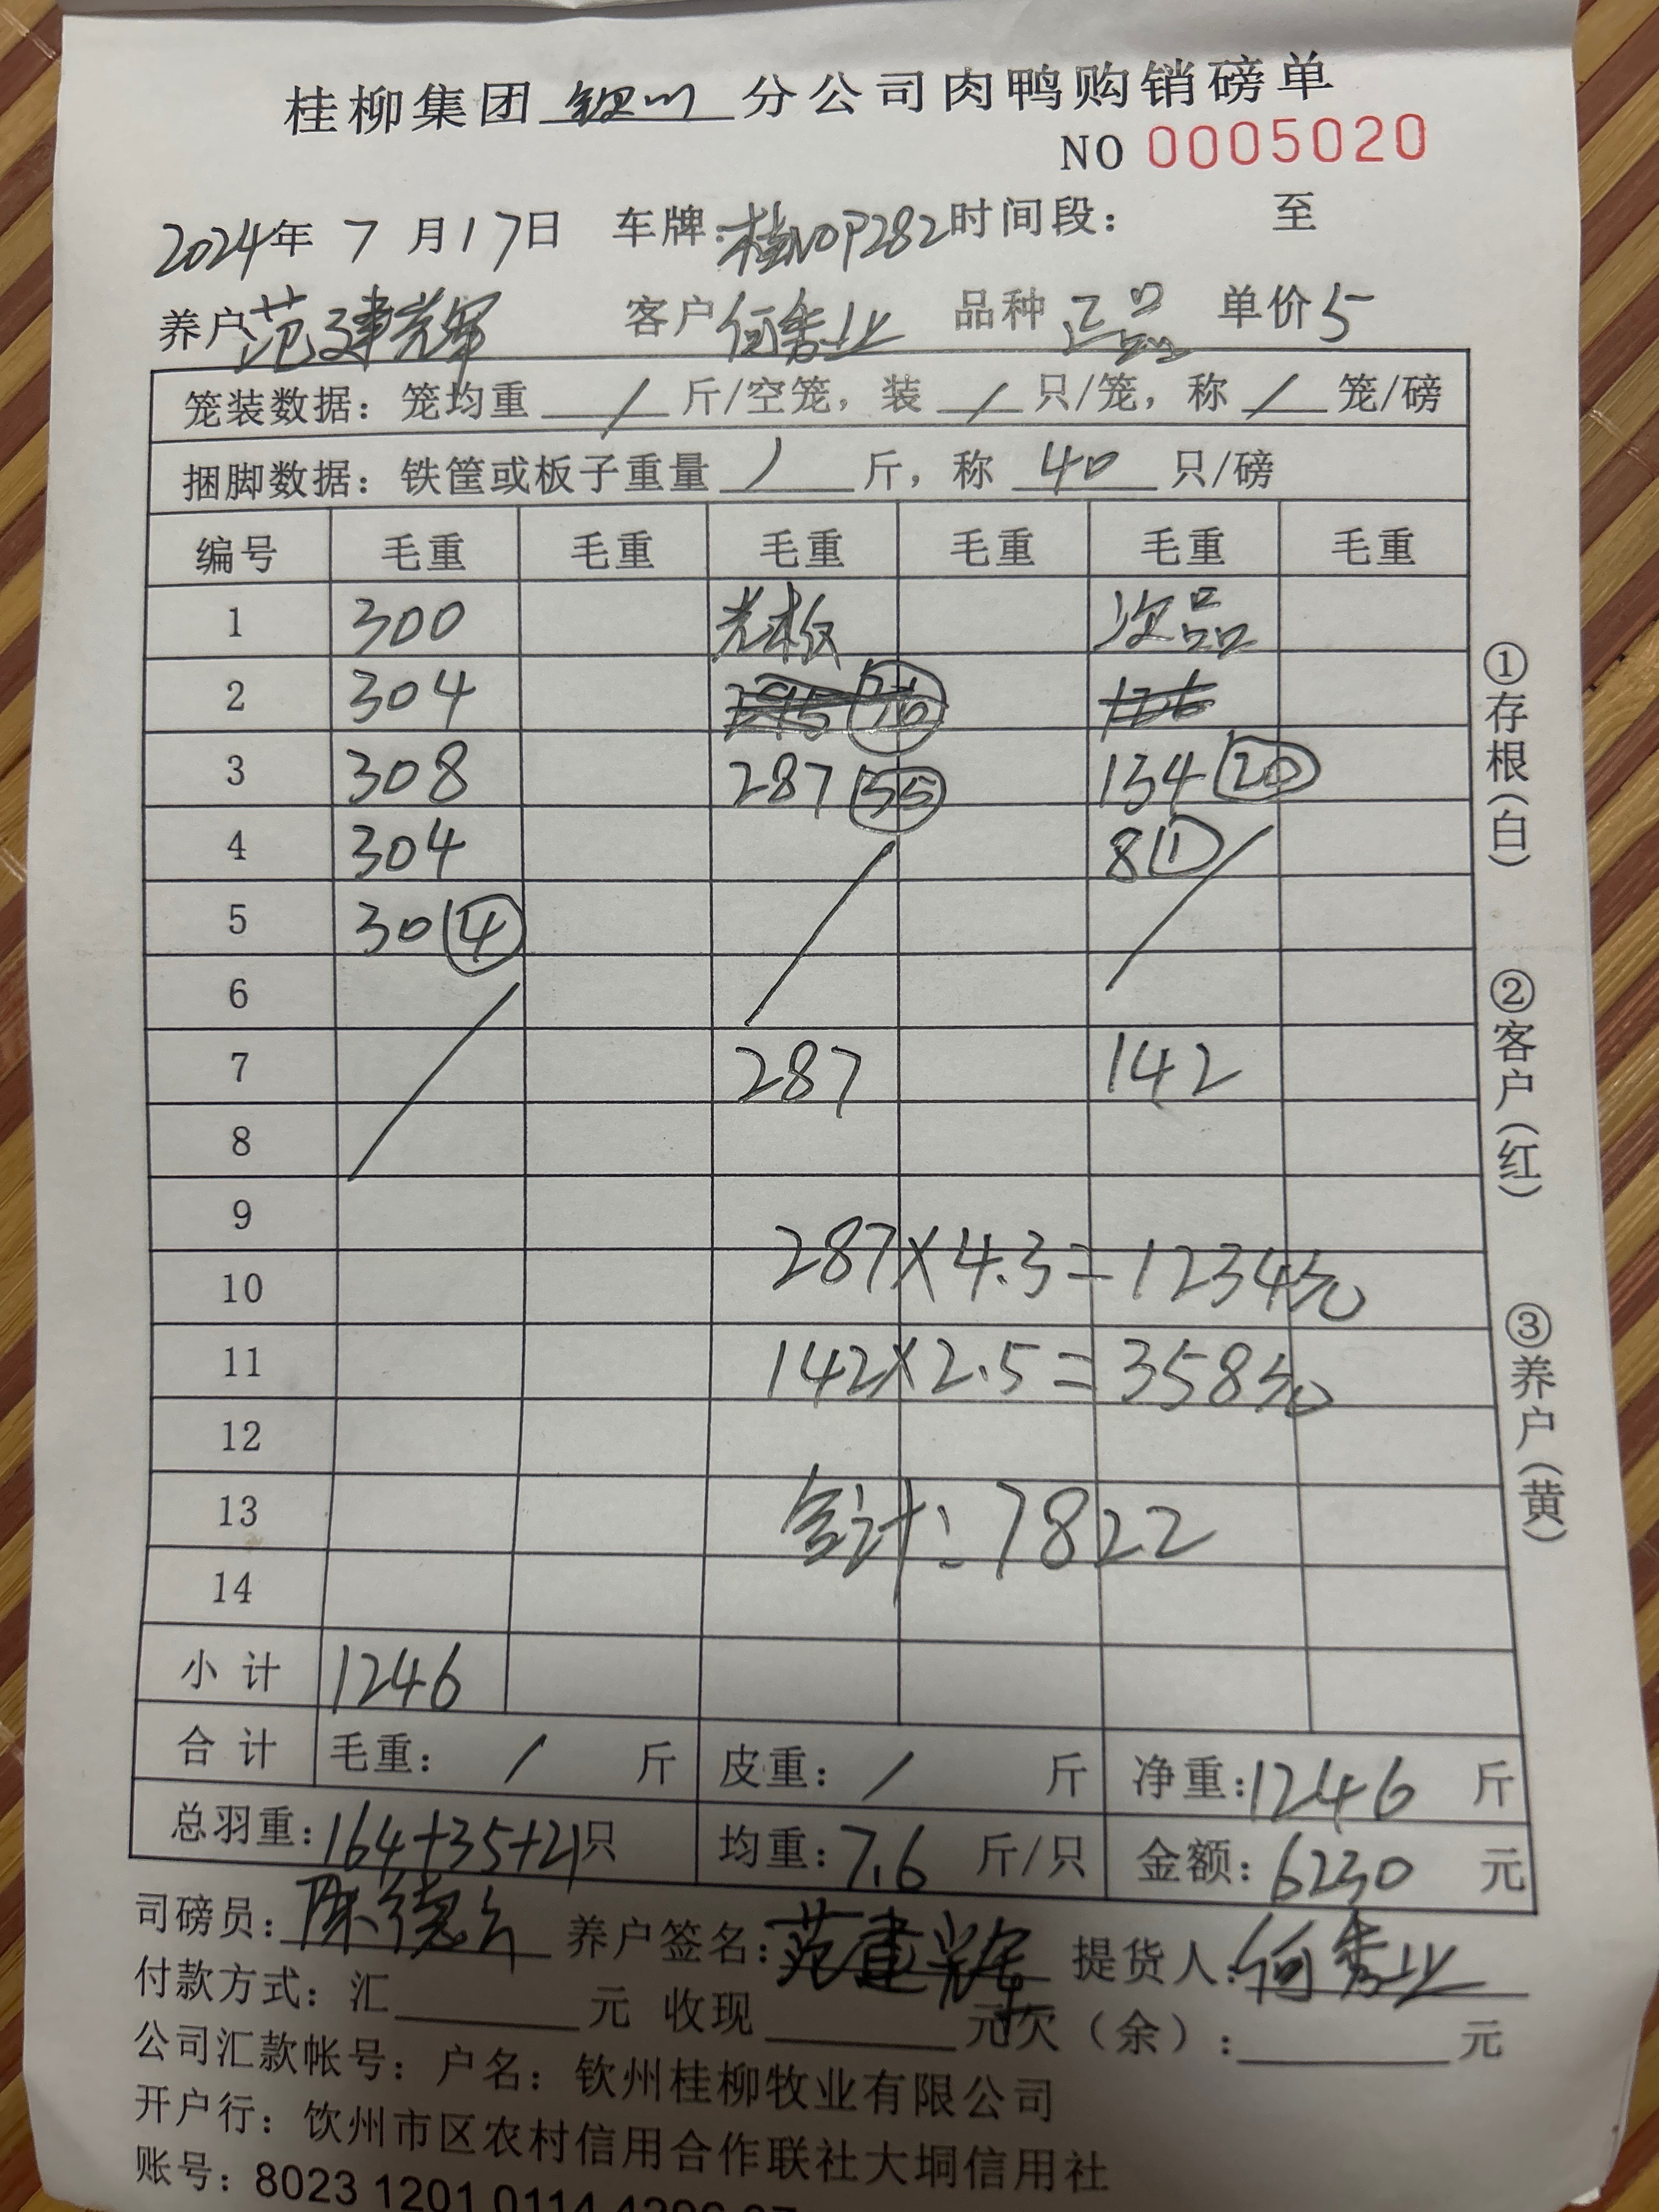 桂柳集团 钦州 分公司肉鸭购销磅单
NO 0005020
2024年 7 月17日 车牌:桂N0P282 时间段: 至
养户 范建辉 客户 何秀业 品种 正品 单价 5
笼装数据:笼均重 / 斤/空笼,装 / 只/笼,称 / 笼/磅
捆脚数据:铁筐或板子重量 / 斤,称 40 只/磅
编号 毛重 毛重 毛重 毛重 毛重 毛重
1 300 光板 次品
2 304
3 308 287 35 134 20
4 304 8 1
5 30 4
6
7 287 142
8
9
10 287×4.3=1234元
11 142×2.5=358元
12
13 合计:7822
14
小 计 1246
合 计 毛重: / 斤 皮重: / 斤 净重:1246 斤
总羽重:164+35+21只 均重:7.6 斤/只 金额:6230 元
司磅员: 养户签名:范建辉 提货人:何秀业
付款方式:汇 元 收现 元 欠(余): 元
公司汇款帐号:户名:钦州桂柳牧业有限公司
开户行:饮州市区农村信用合作联社大垌信用社
账号:8023 1201 0114
①存根(白)
②客户(红)
③养户(黄)